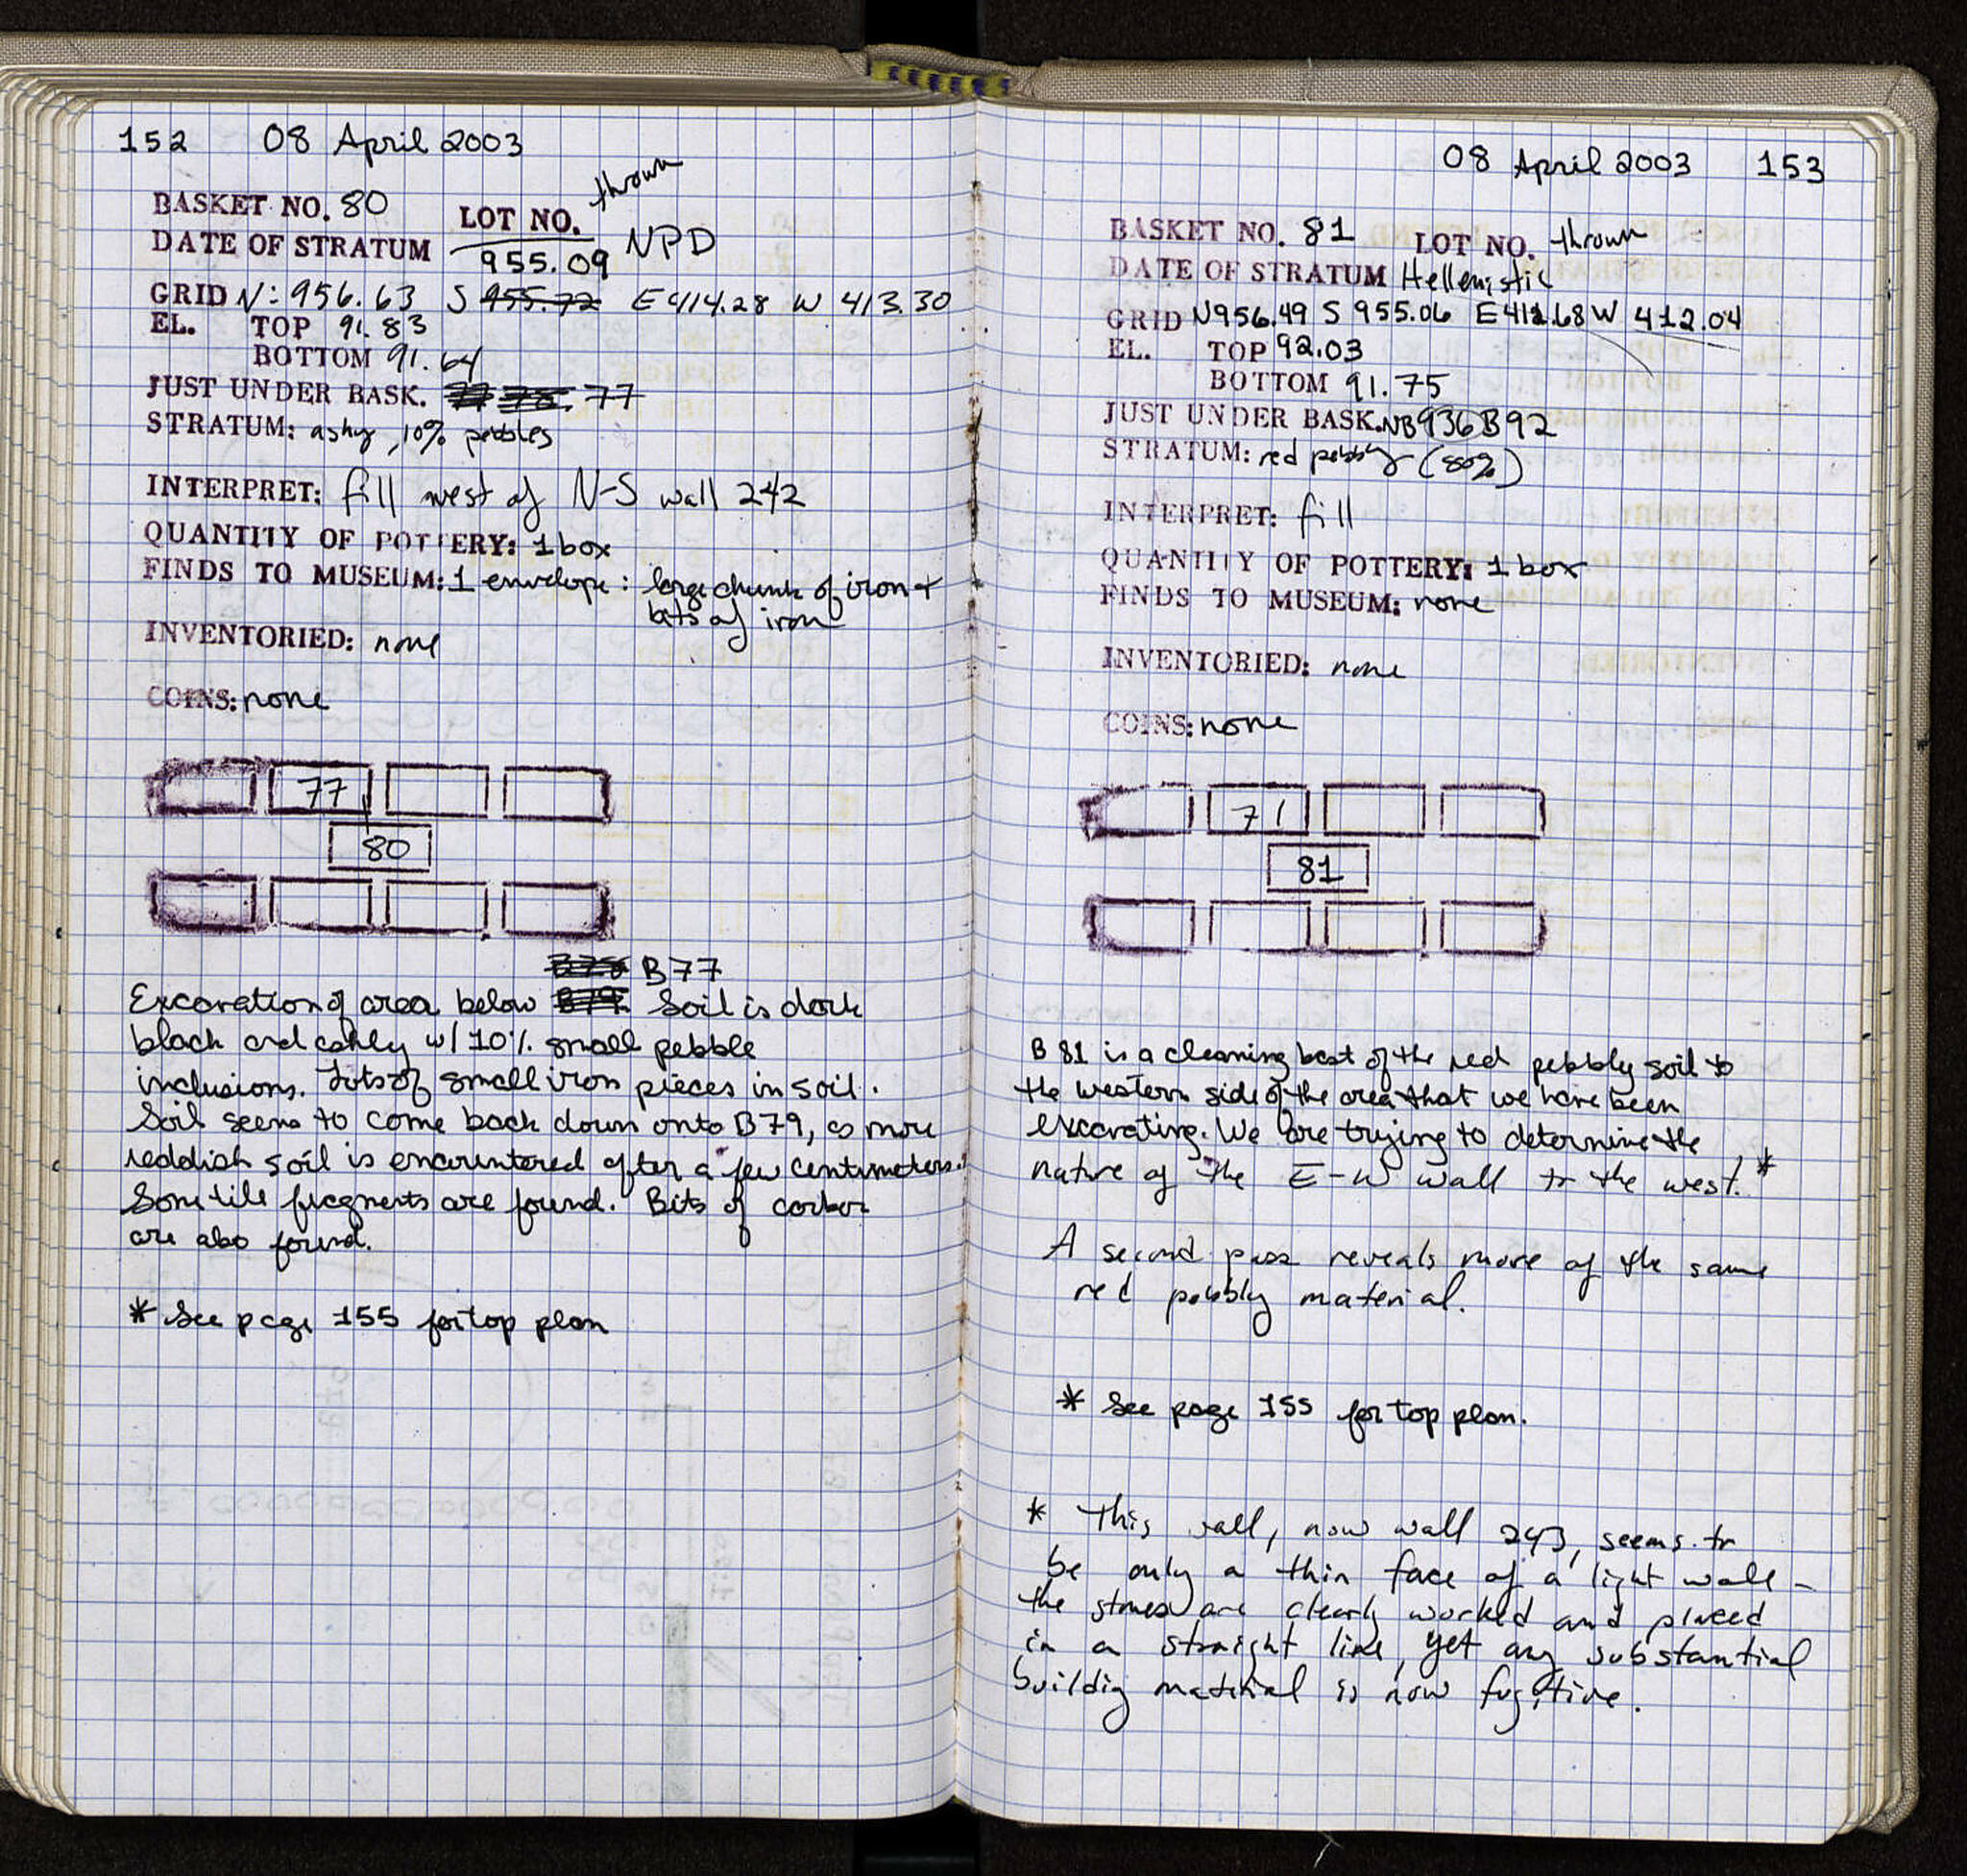 152 08 April 2003
thrown
BASKET NO. 80 LOT NO.
DATE OF STRATUM 955.09 NPD
GRID N: 956.63 S 955.72 E 414.28 W 413.30
EL. TOP 91.83
BOTTOM 91.64
JUST UNDER BASK. 77 78. 77
STRATUM: ashy, 10% pebbles
INTERPRET: fill west of N-S wall 242
QUANTITY OF POTTERY: 1 box
FINDS TO MUSEUM: 1 envelope: large chunk of iron +
bits of iron
INVENTORIED: none
COINS: none
77
80
B78 B77
Excavation of area below B79. Soil is dark
black and ashy w/ 10% small pebble
inclusions. Lots of small iron pieces in soil.
Soil seems to come back down onto B79, as more
reddish soil is encountered after a few centimeters.
Some tile fragments are found. Bits of carbon
are also found.
* See page 155 for top plan
08 April 2003 153
BASKET NO. 81 LOT NO. thrown
DATE OF STRATUM Hellenistic
GRID N956.49 S 955.06 E 412.68 W 412.04
EL. TOP 92.03
BOTTOM 91.75
JUST UNDER BASK. NB936B92
STRATUM: red pebbly (80%)
INTERPRET: fill
QUANTITY OF POTTERY: 1 box
FINDS TO MUSEUM: none
INVENTORIED: none
COINS: none
71
81
B 81 is a cleaning bast of the red pebbly soil to
the western side of the area that we have been
excavating. We are trying to determine the
nature of the E-W wall to the west. *
A second pass reveals more of the same
red pebbly material.
* See page 155 for top plan.
* This wall, now wall 243, seems to
be only a thin face of a light wall -
the stones are clearly worked and placed
in a straight line, yet any substantial
buildig material is now fugitive.